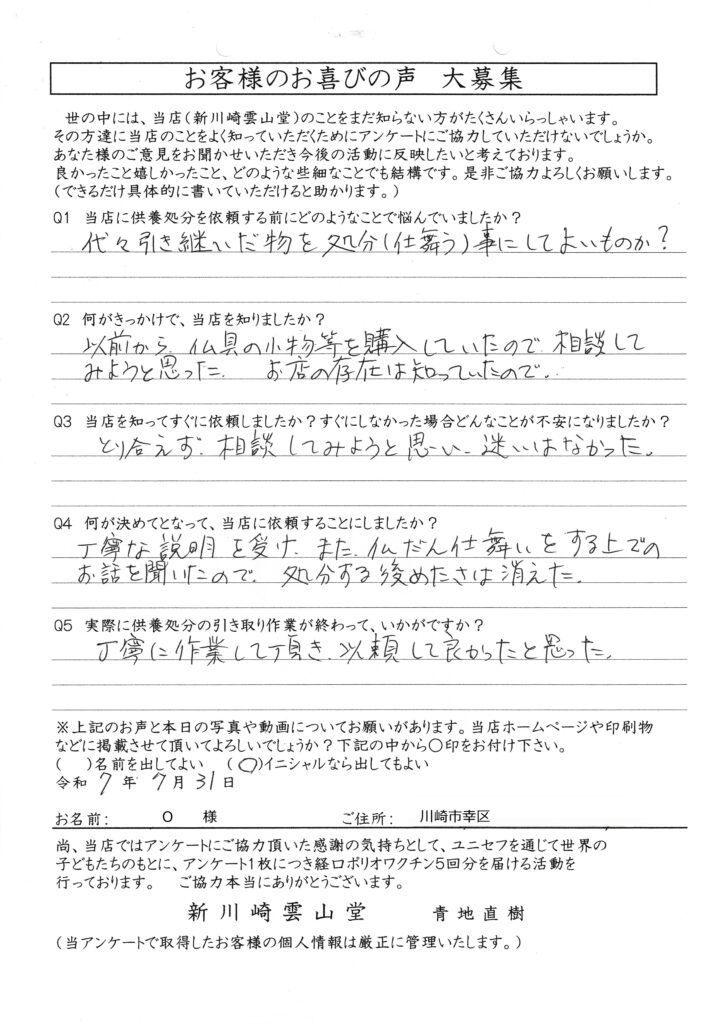 お客様のお喜びの声　大募集
世の中には、当店(新川崎雲山堂)のことをまだ知らない方がたくさんいらっしゃいます。
その方達に当店のことをよく知っていただくためにアンケートにご協力していただけないでしょうか。
あなた様のご意見をお聞かせいただき今後の活動に反映したいと考えております。
良かったこと嬉しかったこと、どのような些細なことでも結構です。是非ご協力よろしくお願いします。
(できるだけ具体的に書いていただけると助かります。)
Q1　当店に供養処分を依頼する前にどのようなことで悩んでいましたか？
代々引き継いだ物を処分(仕舞う)事にしてよいものか？
Q2　何がきっかけで、当店を知りましたか？
以前から、仏具の小物等を購入していたので、相談して
みようと思った。　お店の存在は知っていたので。
Q3　当店を知ってすぐに依頼しましたか？すぐにしなかった場合どんなことが不安になりましたか？
とり合えず、相談してみようと思い、迷いはなかった。
Q4　何が決めてとなって、当店に依頼することにしましたか？
丁寧な説明を受け、また、仏だん仕舞いをする上での
お話を聞いたので、処分する後めたさは消えた。
Q5　実際に供養処分の引き取り作業が終わって、いかがですか？
丁寧に作業して頂き、以頼して良かったと思った。
※上記のお声と本日の写真や動画についてお願いがあります。当店ホームページや印刷物
などに掲載させて頂いてよろしいでしょうか？下記の中から〇印をお付け下さい。
(　)名前を出してよい　(〇)イニシャルなら出してもよい
令和 7 年 7 月 31 日
お名前:　O　様　ご住所:　川崎市幸区
尚、当店ではアンケートにご協力頂いた感謝の気持ちとして、ユニセフを通じて世界の
子どもたちのもとに、アンケート1枚につき経口ポリオワクチン5回分を届ける活動を
行っております。　ご協力本当にありがとうございます。
新川崎雲山堂　青地直樹
(当アンケートで取得したお客様の個人情報は厳正に管理いたします。)